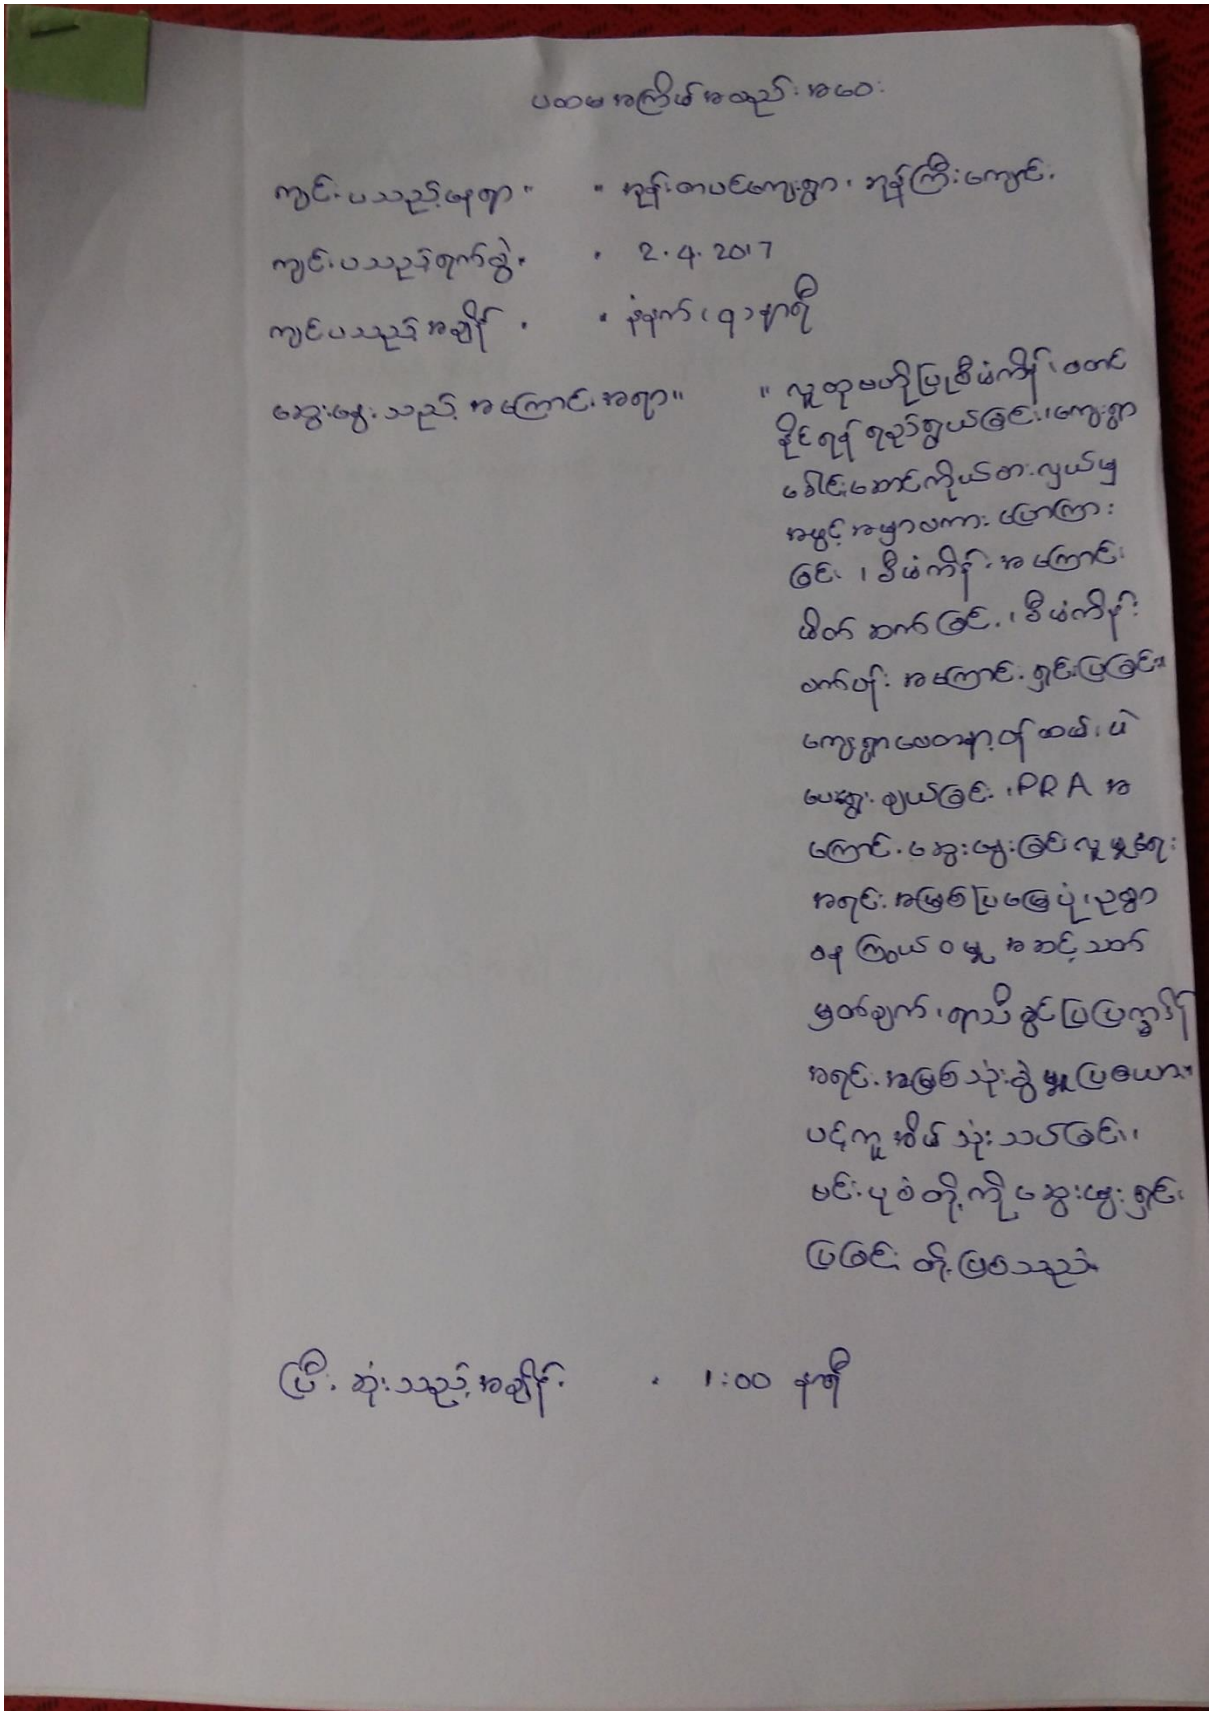 ပထမအကြိမ်အစည်းအဝေး
ကျင်းပသည့်နေရာ။ ။ အုန်းတပင်ကျေးရွာ၊ ဘုန်းကြီးကျောင်း
ကျင်းပသည့်ရက်စွဲ။ ။ 2.4.2017
ကျင်းပသည့်အချိန် ။ ။ နံနက် (၇) နာရီ
ဆွေးနွေးသည့် အကြောင်းအရာ။ ။ လူထုဗဟိုပြုစီမံကိန်း စတင်
နိုင်ရန် ရည်ရွယ်ခြင်း၊ ကျေးရွာ
ခေါင်းဆောင်ကိုယ်စားလှယ်မှ
အဖွင့်အမှာစကား ပြောကြား
ခြင်း ၊ စီမံကိန်း အကြောင်း
မိတ်ဆက်ခြင်း ၊ စီမံကိန်း
စက်ဝန်း အကြောင်း ရှင်းပြခြင်း။
ကျေးရွာစေတနာ့ဝန်ထမ်း မဲ
ပေးရွေးချယ်ခြင်း ၊ PRA အ
ကြောင်း ဆွေးနွေးခြင်း လူမှုရေး
အရင်းအမြစ်ပြမြေပုံ ၊ ဥစ္စာ
ဓန ကြွယ်ဝမှု အဆင့်သတ်
မှတ်ချက် ၊ ရာသီခွင်ပြပြက္ခဒိန်
အရင်းအမြစ်သုံးစွဲမှုပြဇယား။
ပင့်ကူအိမ်သုံးသပ်ခြင်း၊
ဗင်းပုံစံတို့ကို ဆွေးနွေးရှင်း
ပြခြင်း တို့ဖြစ်သည်။
ပြီးဆုံးသည့်အချိန် ။ 1:00 နာရီ